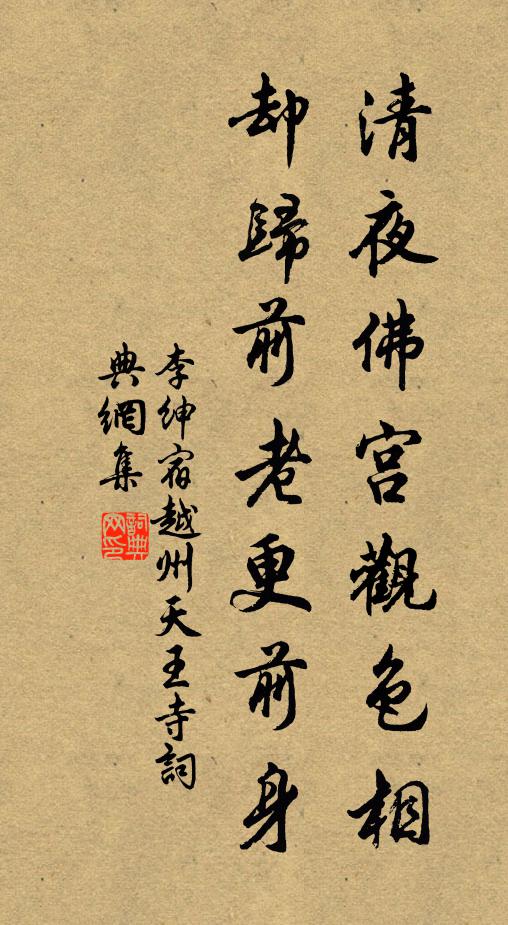 清夜佛宮觀色相
却歸前老更前身
李紳宿越州天王寺詞
典網集
詞典
网印